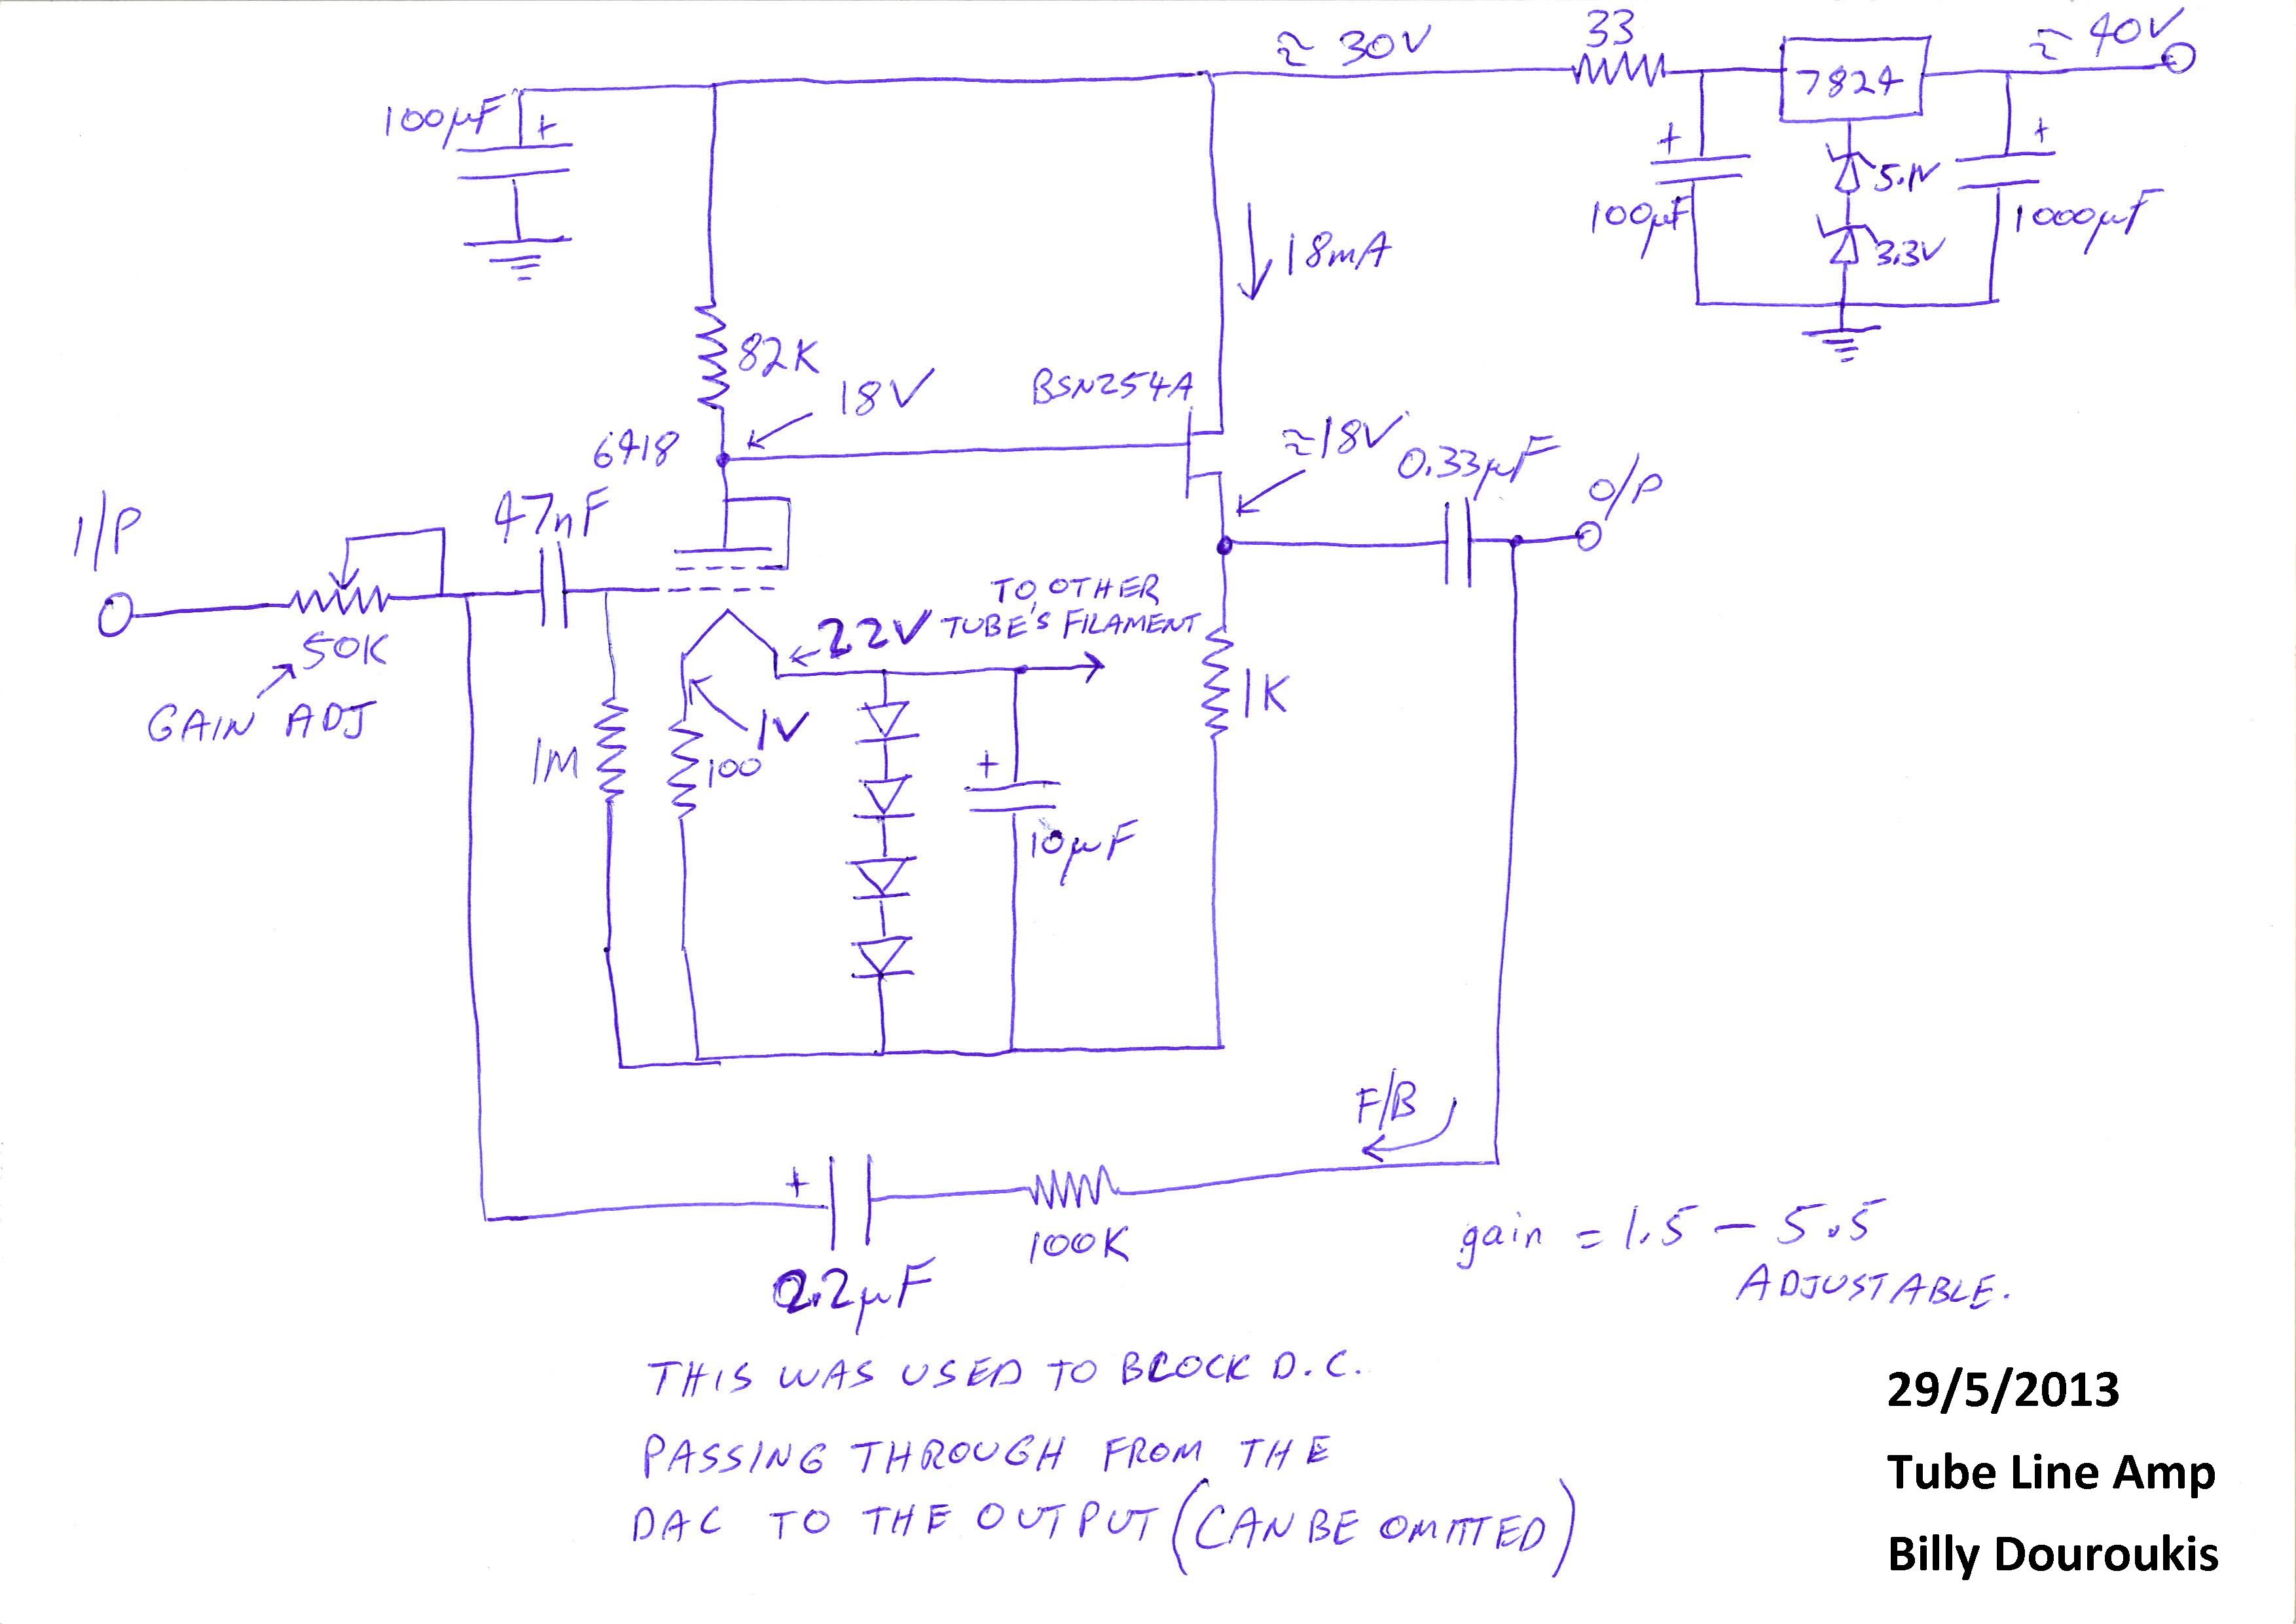 ≈ 30V
33
≈ 40V
7824
100µF
+
+
+
5.1V
3.3V
100µF
1000µF
18mA
82K
18V
BSN254A
6418
≈18V
0.33µF
O/P
I/P
47nF
50K
GAIN ADJ
TO OTHER
TUBE'S FILAMENT
2.2V
1V
1M
100
1K
+
10µF
F/B
+
100K
2.2µF
gain = 1.5 – 5.5
ADJUSTABLE.
THIS WAS USED TO BLOCK D.C.
PASSING THROUGH FROM THE
DAC TO THE OUTPUT (CAN BE OMITTED)
29/5/2013
Tube Line Amp
Billy Douroukis